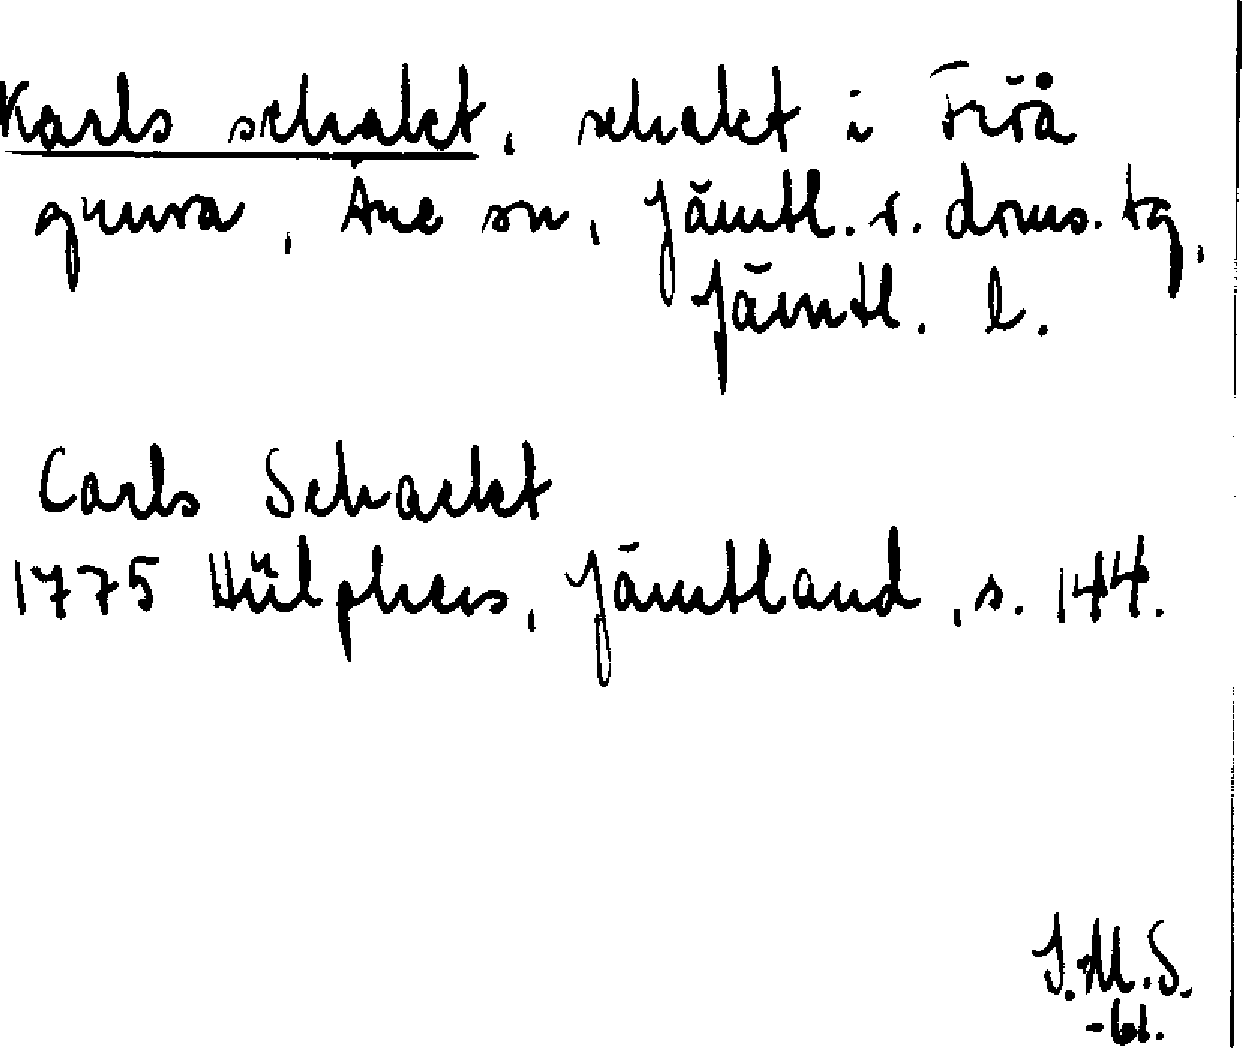 Karls schakt, schakt i Fröå
gruva, Åre sn, Jämtl. v. doms. tg,
Jämtl. l.
Carls Schackt
1775 Hülphers, Jämtland, s. 144.
I.M.S.
-61.